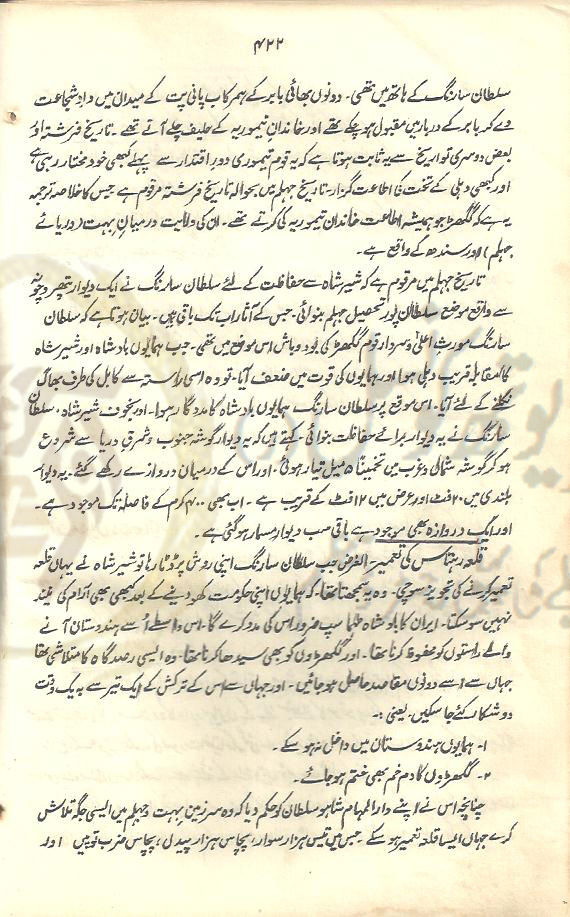 ۴۲۲
سلطان سارنگ کے ہاتھ میں تھی۔ دونوں بھائی بابر کے ہمرکاب پانی پت کے میدان میں داد شجاعت
دے کر بابر کے دربار میں مقبول ہو چکے تھے اور خاندان تیموریہ کے حلیف چلے آتے تھے۔ تاریخ فرشتہ اور
بعض دوسری تواریخ سے یہ ثابت ہوتا ہے کہ یہ قوم تیموری دور اقتدار سے پہلے کبھی خود مختار رہی ہے
اور کبھی دہلی کے تخت کی اطاعت گزار۔ تاریخ جہلم میں بحوالہ تاریخ فرشتہ مرقوم ہے جس کا خلاصہ ترجمہ
یہ ہے کہ گکھڑ جو ہمیشہ اطاعت خاندان تیموریہ کی کرتے تھے۔ ان کی ولایت درمیان بہت (دریائے
جہلم) اور سندھ کے واقع ہے۔
تاریخ جہلم میں مرقوم ہے کہ شیر شاہ سے حفاظت کے لئے سلطان سارنگ نے ایک دیوار پتھر و چونہ
سے واقع موضع سلطان پور تحصیل جہلم بنوائی۔ جس کے آثار اب تک باقی ہیں۔ بیان ہوتا ہے کہ سلطان
سارنگ مورث اعلیٰ و سردار قوم گکھڑ کی بود و باش اس موضع میں تھی۔ جب ہمایوں بادشاہ اور شیر شاہ
کا مقابلہ قریب دہلی ہوا اور ہمایوں کی قوت میں ضعف آیا۔ تو وہ اسی راستہ سے کابل کی طرف بھاگ
نکلنے کے لئے آیا۔ اس موقع پر سلطان سارنگ ہمایوں بادشاہ کا مددگار ہوا۔ اور بخوف شیر شاہ، سلطان
سارنگ نے یہ دیوار برائے حفاظت بنوائی۔ کہتے ہیں کہ یہ دیوار گوشہ جنوب و شرق دریا سے شروع
ہو کر گوشہ شمال و غرب میں تخمیناً ۵ میل تیار ہوئی۔ اور اس کے درمیان دروازے رکھے گئے۔ یہ دیوار
بلندی میں ۲۰ فٹ اور عرض میں ۱۲ فٹ کے قریب ہے۔ اب بھی ۴۰۰ کرم کے فاصلہ تک موجود ہے۔
اور ایک دروازہ بھی موجود ہے باقی سب دیوار مسمار ہو گئی ہے۔
قلعہ رہتاس کی تعمیر۔ الغرض جب سلطان سارنگ اپنی روش پر ڈٹا رہا تو شیر شاہ نے یہاں قلعہ
تعمیر کرنے کی تجویز سوچی۔ وہ یہ سمجھتا تھا۔ کہ ہمایوں اپنی حکومت کھو دینے کے بعد کبھی بھی آرام کی نیند
نہیں سو سکتا۔ ایران کا بادشاہ طہماسپ ضرور اس کی مدد کرے گا۔ اس واسطے اُسے ہندوستان آنے
والے راستوں کو محفوظ کرنا تھا۔ اور گکھڑوں کو بھی سیدھا کرنا تھا۔ وہ ایسی رصدگاہ کا متلاشی تھا
جہاں سے اسے دونوں مقاصد حاصل ہو جائیں۔ اور جہاں سے اس کے ترکش کے ایک تیر سے بہ یک وقت
دو شکار کئے جا سکیں۔ یعنی :۔
۱۔ ہمایوں ہندوستان میں داخل نہ ہو سکے۔
۲۔ گکھڑوں کا دم خم بھی ختم ہو جائے۔
چنانچہ اس نے اپنے دارالمہام شاہو سلطان کو حکم دیا کہ وہ سرزمین بہت و جہلم میں ایسی جگہ تلاش
کرے جہاں ایسا قلعہ تعمیر ہو سکے۔ جس میں تیس ہزار سوار، پچاس ہزار پیدل، پچاس ضرب توپیں اور